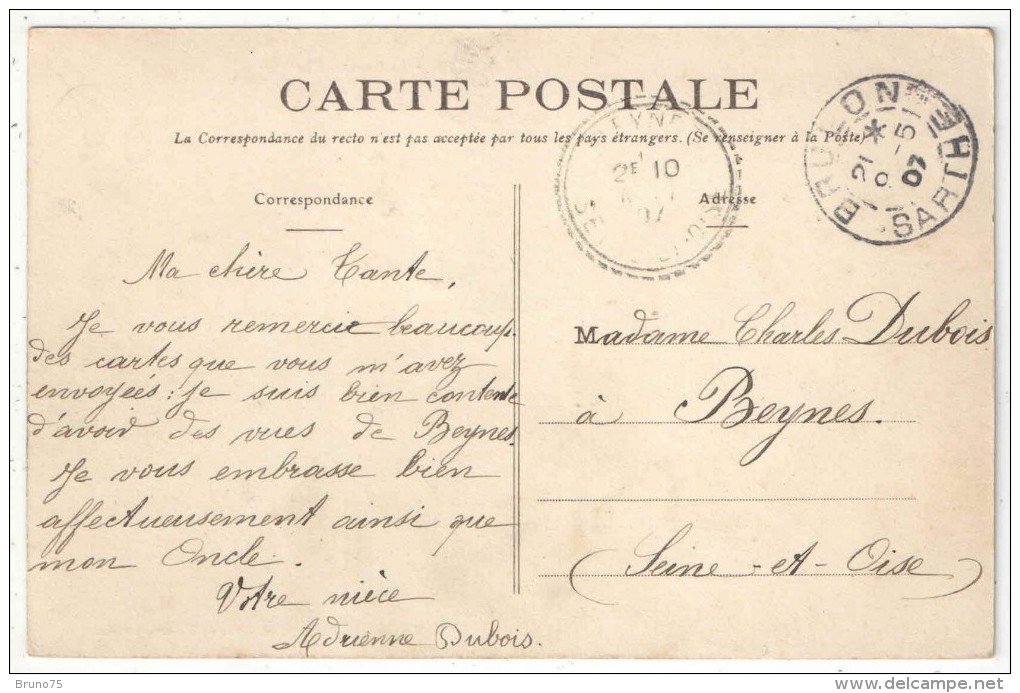 CARTE POSTALE
La Correspondance du recto n'est pas acceptée par tous les pays étrangers. (Se renseigner à la Poste)
Correspondance
Ma chère Tante,
Je vous remercie beaucoup
des cartes que vous m'avez
envoyées : je suis bien contente
d'avoir des vues de Beynes.
Je vous embrasse bien
affectueusement ainsi que
mon Oncle.
Votre nièce
Adrienne Dubois.
Adresse
Madame Charles Dubois
à Beynes.
(Seine-et-Oise)
EYNE
2E 10
BRULON
21 - 5
07
SARTHE
Bruno75
delcampe.net